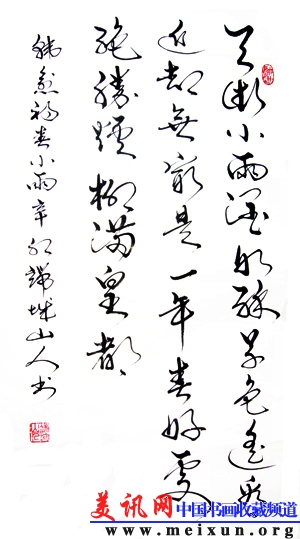 天街小雨潤如酥草色遙看
近却無最是一年春好處
絕勝煙柳滿皇都
韩愈初春小雨辛卯端城山人书
美讯网 中国书画收藏频道
www.meixun.org